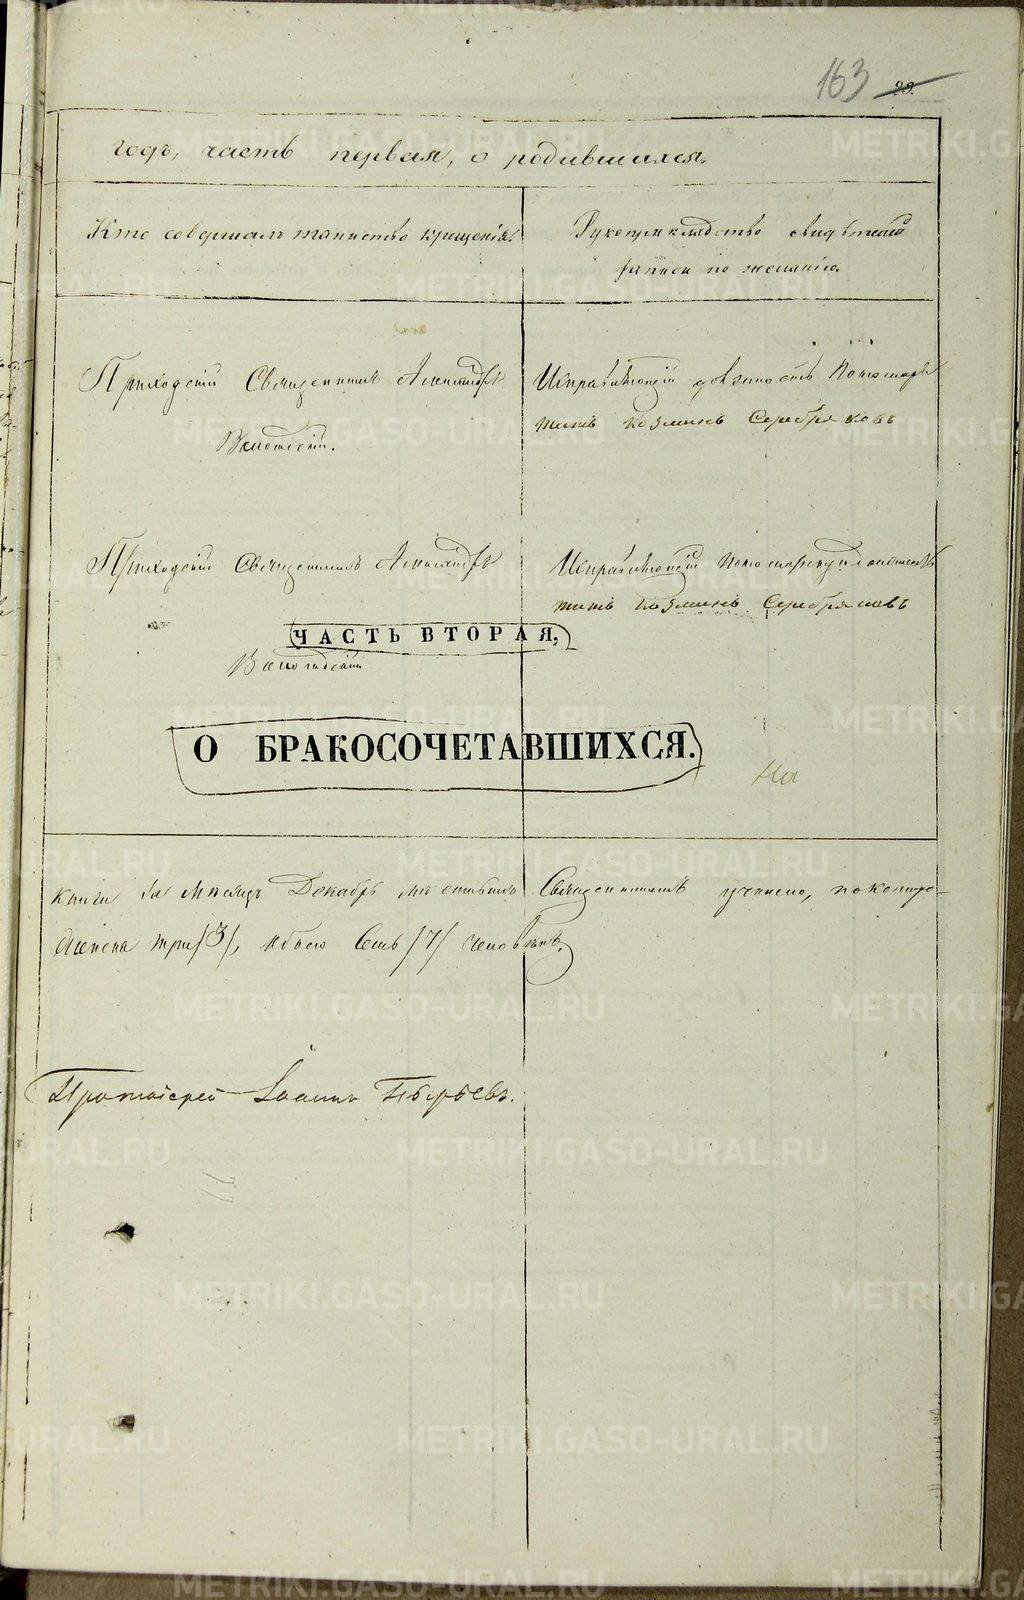 163 29.
годъ, часть первая, о родившихся.
Кто совершалъ таинство крещенія.
Рукоприкладство свидѣтелей
записи по желанію.
Приходскій Священникъ Александръ
Вологодскій.
Исправляющій должность Пономаря
Козминъ Серебряковъ
Приходскій Священникъ Александръ
Вологодскій
Исправляющій Пономарскую должность
Козминъ Серебряковъ
ЧАСТЬ ВТОРАЯ,
О БРАКОСОЧЕТАВШИХСЯ.
На
книги За Мѣсяцъ Декабрь Священникомъ учинено, по которо
пола три /3/, обоего Семь /7/ человѣкъ.
Протоіерей Іоаннъ Пырьевъ.
METRIKI.GASO-URAL.RU